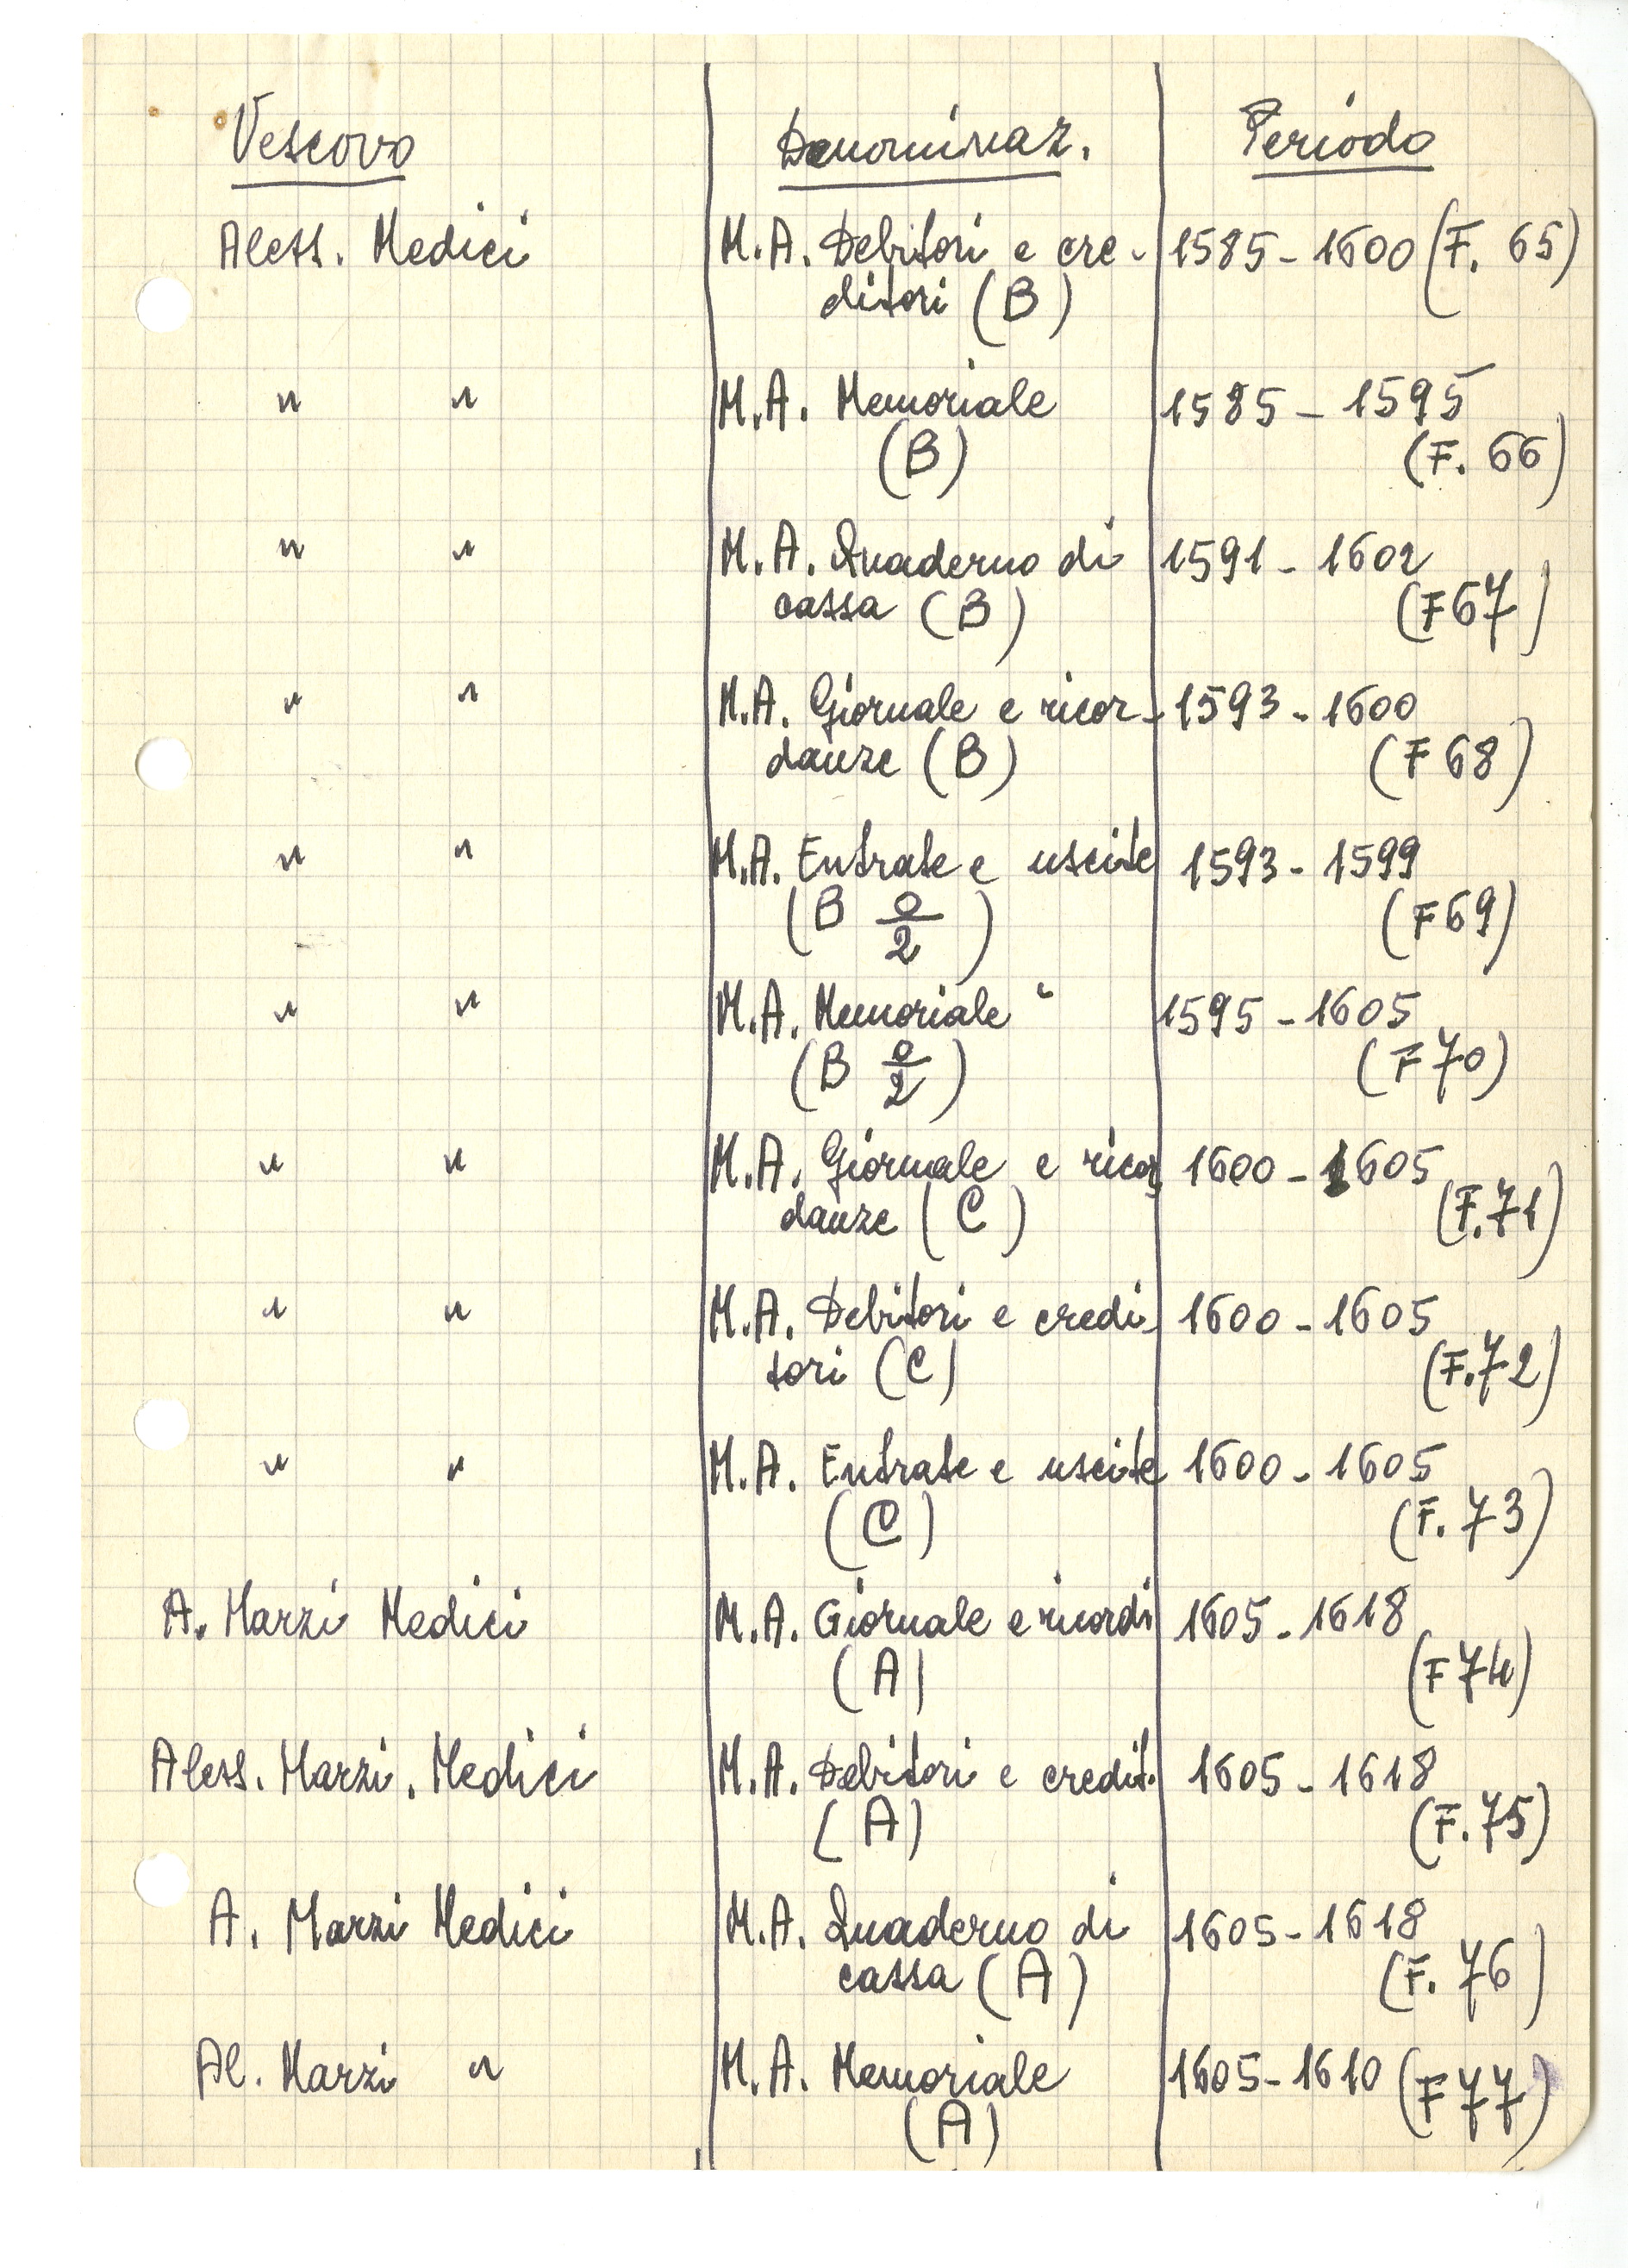 Vescovo Denominaz. Periodo
Aless. Medici M.A. Debitori e cre- 1585-1600 (F. 65)
ditori (B)
" " M.A. Memoriale 1585-1595
(B) (F. 66)
" " M.A. Quaderno di 1591-1602
cassa (B) (F 67)
" " M.A. Giornale e ricor- 1593-1600
danze (B) (F 68)
" " M.A. Entrate e uscite 1593-1599
(B 0/2) (F 69)
" " M.A. Memoriale " 1595-1605
(B 0/2) (F 70)
" " M.A. Giornale e ricor 1600-1605
danze (C) (F.71)
" " M.A. Debitori e credi- 1600-1605
tori (C) (F.72)
" " M.A. Entrate e uscite 1600-1605
(C) (F. 73)
A. Marzi Medici M.A. Giornale e ricordi 1605-1618
(A) (F 74)
Aless. Marzi. Medici M.A. Debitori e credit. 1605-1618
(A) (F.75)
A. Marzi Medici M.A. Quaderno di 1605-1618
cassa (A) (F. 76)
Al. Marzi " M.A. Memoriale 1605-1610 (F 77)
(A)